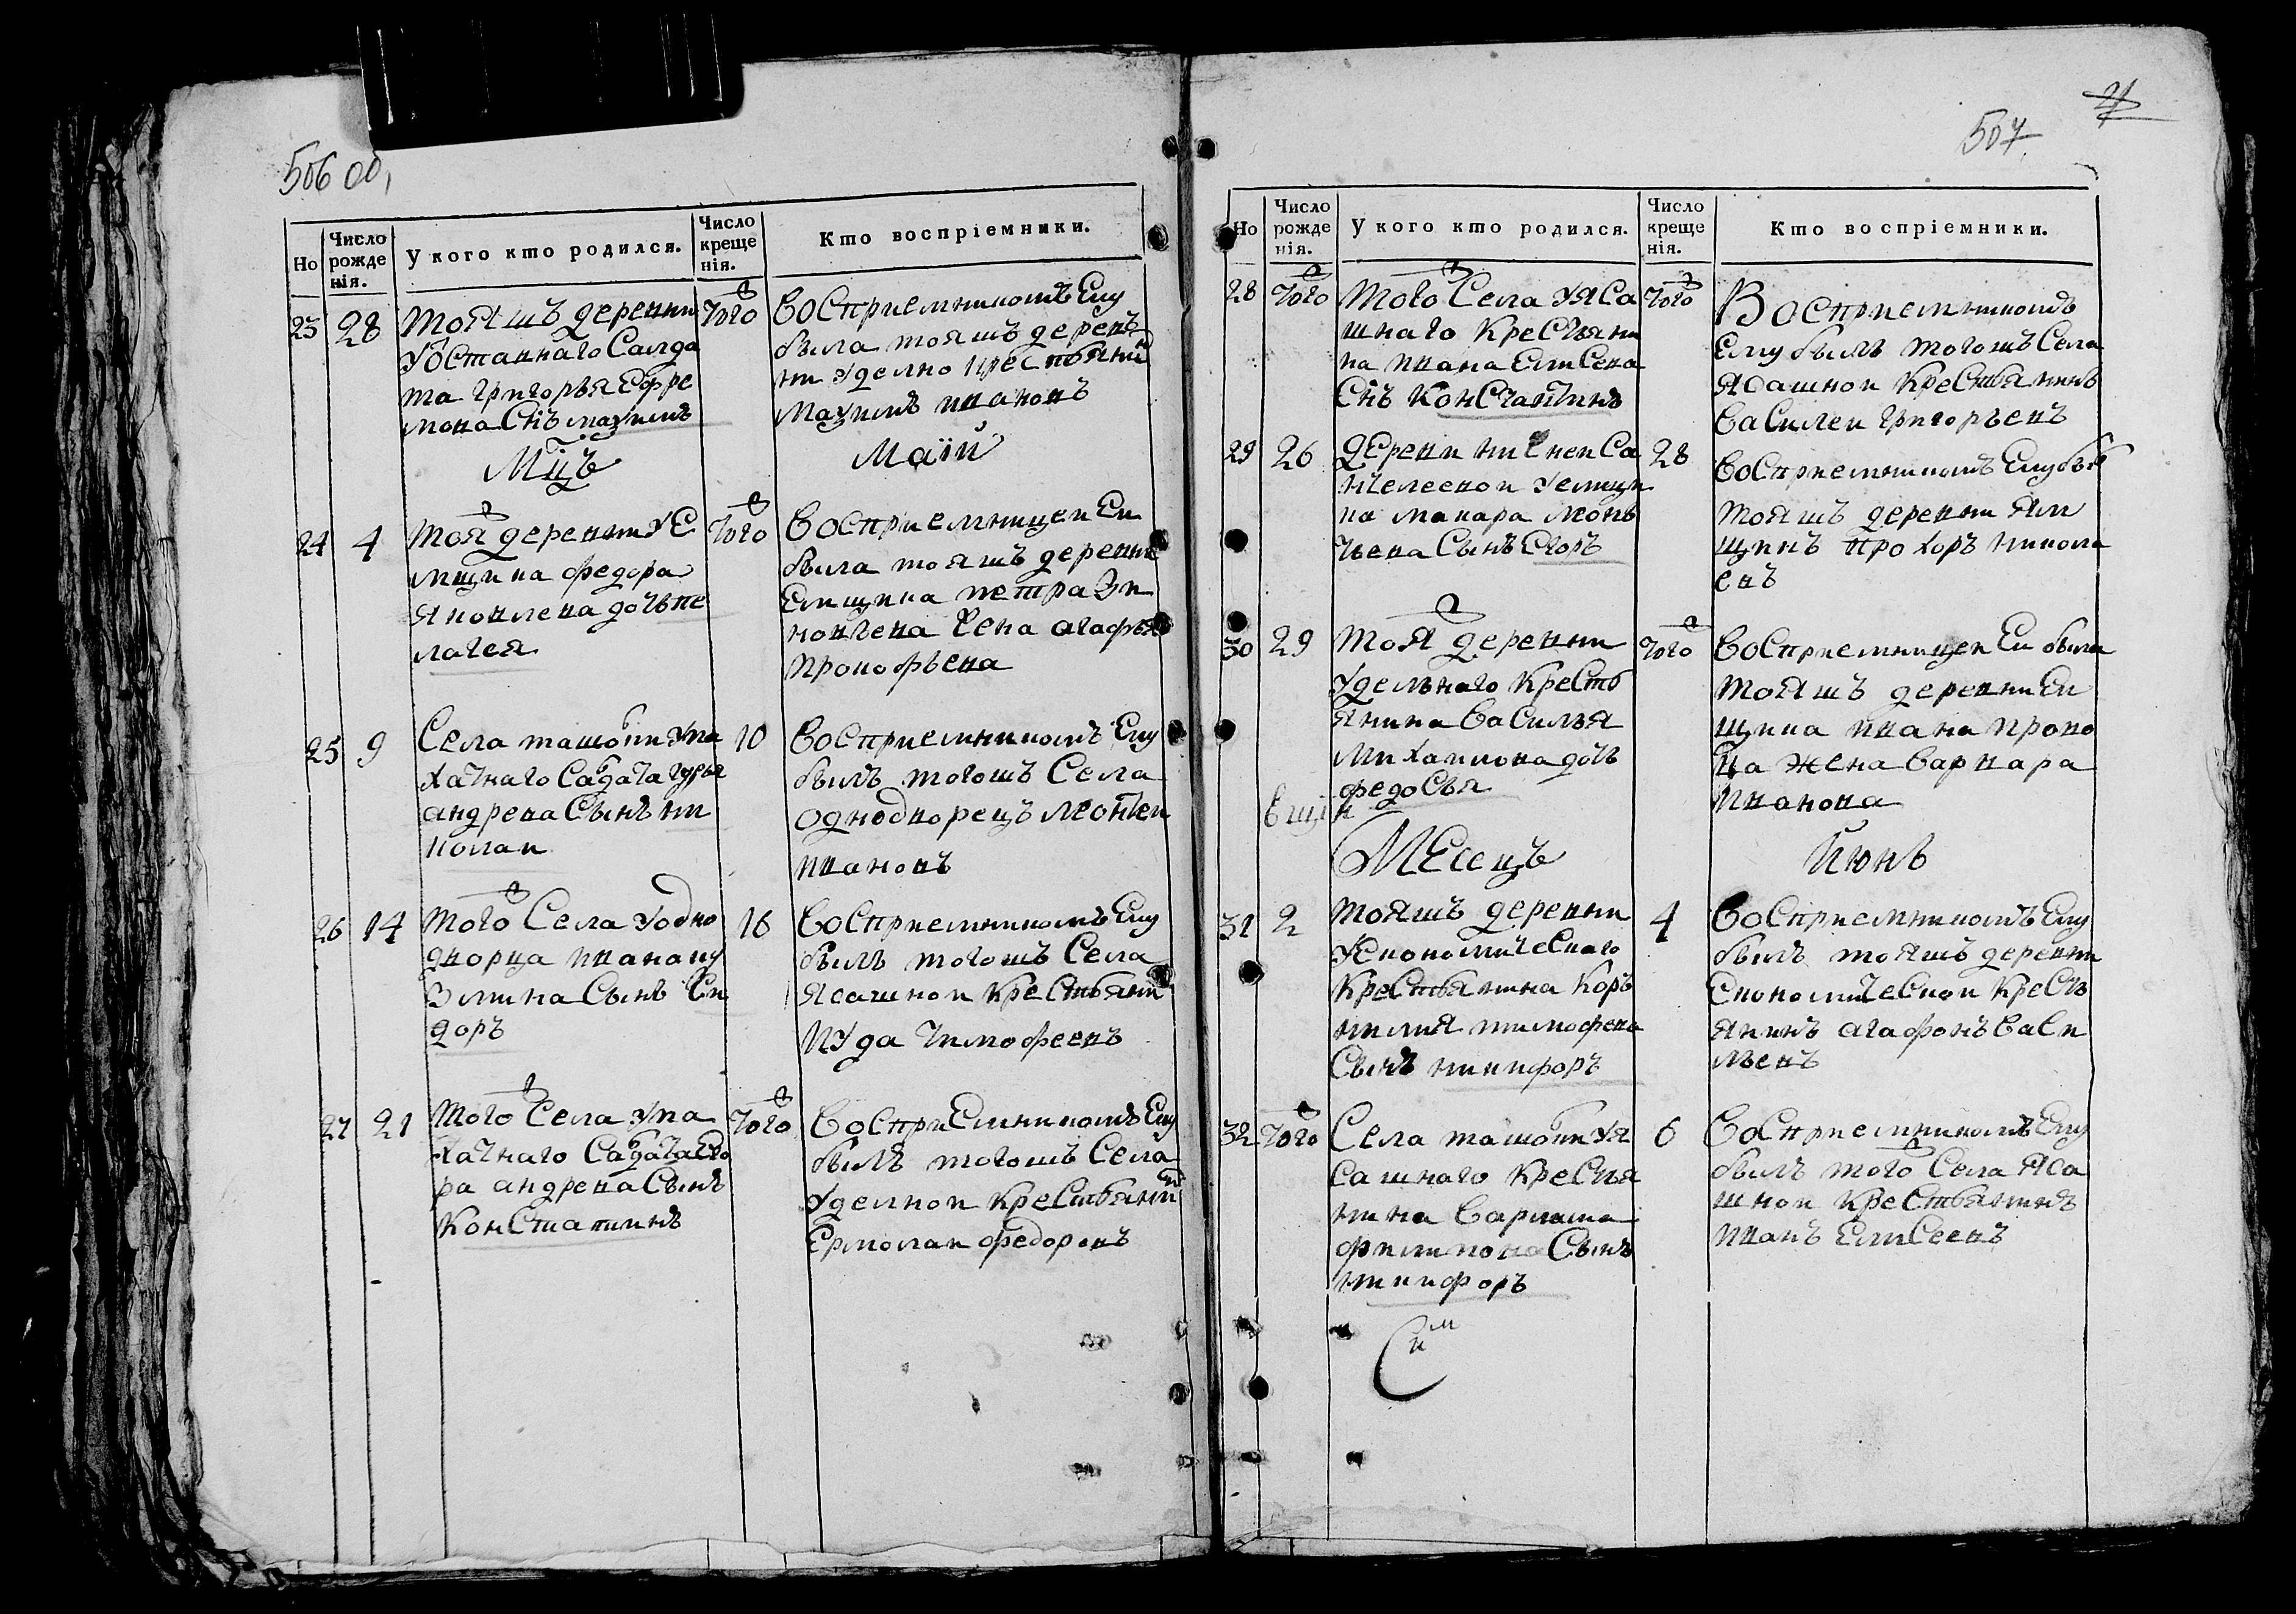 506 об,
Но
Число рожденія.
У кого кто родился.
Число крещенія.
Кто воспріемники.
23 28
тояжъ деревни
Уоставнаго Салда
та григорья Ефре
мова Снъ маѯимъ
того
Восприемникомъ Ему
была тояжъ деревъ
ни Уделно крестьянин
маѯимъ ивановъ
Мцъ Маій
24 4
тоя деревни УЕ
мщика федора
Яковлева дочь пе
лагея
того
Восприемницеи Еи
была тояжъ деревни
Емщика петра Зи
новьева жена агафья
Прокофьева
25 9
Села ташовки Упа
хатнаго Салдата гурья
андрева Сынъ ни
колаи
10
Восприемникомъ Ему
былъ тогожъ Села
однодворецъ леонтеи
ивановъ
26 14
того Села Уодно
дворца ивана ку
Змина Сынъ Си
доръ
16
Восприемникомъ Ему
былъ тогожъ Села
Ясашнои крестьянин
иУда тимофеевъ
27 21
того Села Упа
хатнаго Салдата Его
ра андрева Сынъ
констатинъ
того
Восприемникомъ Ему
былъ тогожъ Села
Уделнои крестьянин
Ермолаи федоровъ
507
21
Но
Число рожденія.
У кого кто родился.
Число крещенія.
Кто воспріемники.
28 того
того Села УЯСа
шнаго крестьяни
на ивана Елисева
Снъ константинъ
того
Восприемникомъ
Ему былъ тогожъ Села
Ясашнои крестьянинъ
Василеи григорьевъ
29 26
деревни нижнеи Са
нчелеевои Уемщи
ка макара леонъ
тьева Сынъ Егоръ
28
Восприемникомъ Ему былъ
тояжъ деревни Ям
щикъ прохоръ никола
евъ
30 29
тоя деревни
Удельнаго кресть
янина василья
михаилова дочь
федосья
того
Восприемницеи Еи была
тояжъ деревни Ем
щика ивана проко
ва жена варвара
иванова
Месецъ Июнь
31 2
тояжъ деревни
Уекономическаго
крестьянина коръ
нилия тимофева
Сынъ никифоръ
4
Восприемникомъ Ему
былъ тояжъ деревни
Економическои кресть
янинъ агафонъ васи
льевъ
32 того
Села ташовки Уя
сашнаго крестья
нина варлама
филипова Сынъ
никифоръ
6
Восприемникомъ Ему
былъ того Села Яса
шнои крестьянинъ
иванъ Елисеевъ